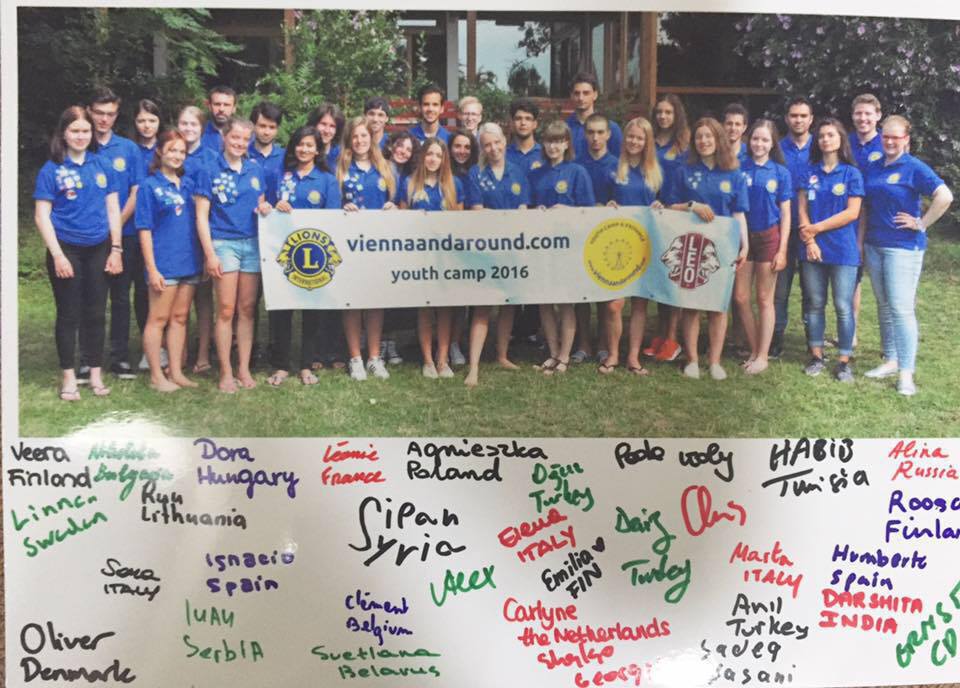 LIONS
L
INTERNATIONAL
viennaandaround.com
youth camp 2016
YOUTH CAMP & EXCHANGE
www.viennaandaround.com
LEO
Veera
Finland
Bulgaria
Dora
Hungary
Léonie
France
Agnieszka
Poland
Italy
HABIB
Tunisia
Alina
Russia
Linnea
Sweden
Lithuania
Sipan
Syria
Turkey
Elena
ITALY
Emilia
FIN
Turkey
Chris
Roosa
Finlan
Sara
ITALY
Ignacio
Spain
Alex
Marta
ITALY
Humberto
Spain
DARSHITA
INDIA
Oliver
Denmark
IVAN
SerbIA
Clément
Belgium
Svetlana
Belarus
Carlyne
the Netherlands
Georgi
Anil
Turkey
Sadeq